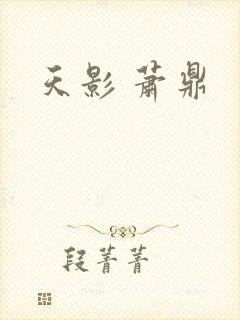 天影 萧鼎
段菁菁